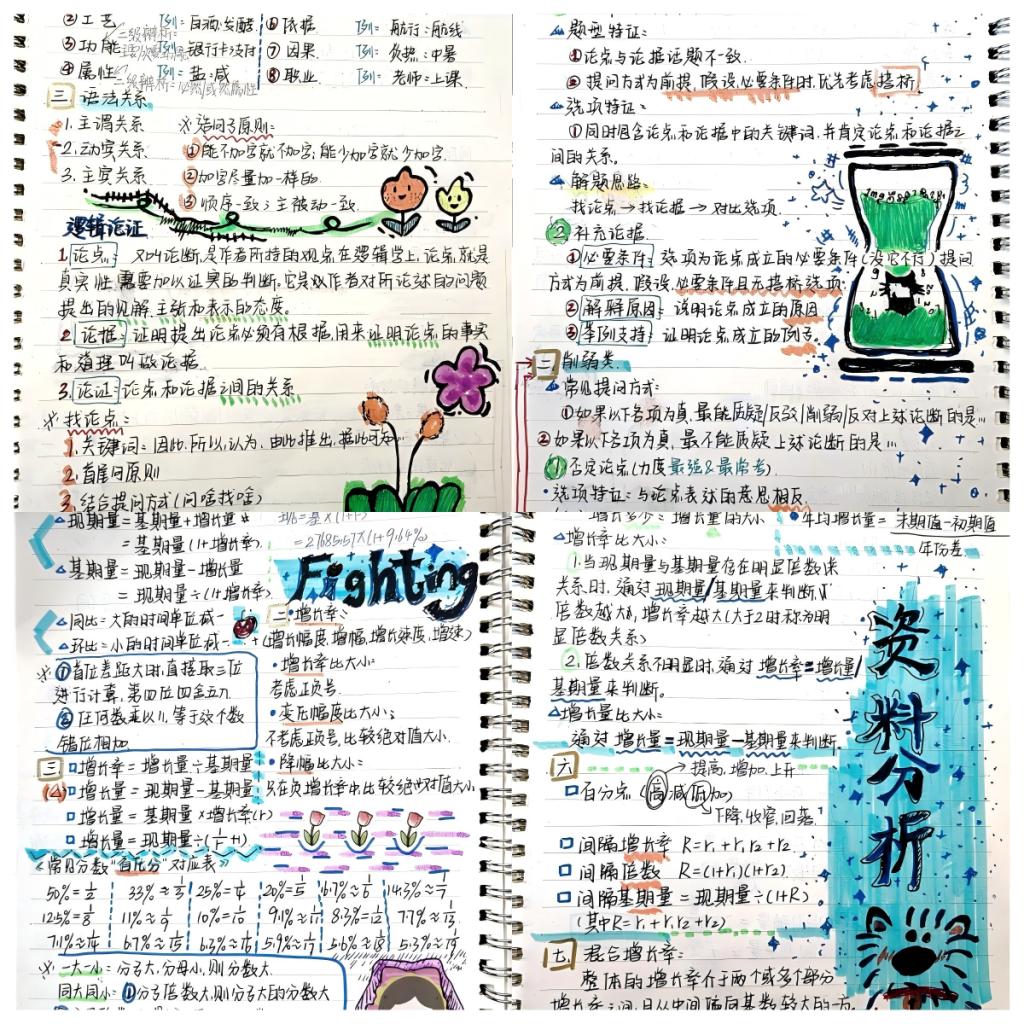 ②工艺 例:白酒:发酵 ⑥依据 例:航行:航线
③功能 例:银行卡:支付 ⑦因果 例:炎热:中暑
④属性 例:盐:咸 ⑧职业 例:老师:上课
三 语法关系
1.主谓关系 ※造句子原则:
2.动宾关系 ①能不加字就不加字,能少加字就少加字
3.主宾关系 ②加字尽量加一样的
③顺序一致;主被动一致
逻辑论证
1.论点:又叫论断,是作者所持的观点在逻辑学上,论点就是
真实性需要加以证实的判断。它是以作者对所论述的问题
提出的见解、主张和表示的态度。
2.论据:证明提出论点必须有根据,用来证明论点的事实
和道理叫做论据
3.论证:论点和论据之间的关系
※找论点:
1.关键词:因此、所以、认为、由此推出、据此可知
2.首尾句原则
3.结合提问方式(问啥找啥)
题型特征:
①论点与论据话题不一致
②提问方式为前提、假设、必要条件时,优先考虑搭桥
选项特征:
①同时包含论点和论据中的关键词,并肯定论点和论据之
间的关系。
解题思路:
找论点→找论据→对比选项
②补充论据
①必要条件:选项为论点成立的必要条件(没它不行)提问
方式为前提、假设、必要条件且无搭桥选项
②解释原因:说明论点成立的原因
③举例支持:证明论点成立的例子
二 削弱类
常见提问方式:
①如果以下各项为真,最能质疑/反驳/削弱/反对上述论断的是…
②如果以下各项为真,最不能质疑上述论断的是…
①否定论点(力度最强&最常考)
·选项特征:与论点表述的意思相反
现期量=基期量+增长量
=基期量(1+增长率)
=2768557×(1+9.64%)
基期量=现期量-增长量
=现期量÷(1+增长率)
Fighting
同比=大的时间单位减一
环比=小的时间单位减一
※①首位差距大时,直接取三位
进行计算,第四位四舍五入
②任何数乘以11,等于这个数
错位相加
二·增长率:
(增长幅度、增幅、增长速度、增速)
·增长率比大小:
考虑正负号.
·变化幅度比大小:
不考虑正负号,比较绝对值大小.
·降幅比大小:
只在负增长率中比较绝对值大小
三 增长率=增长量÷基期量
(四) 增长量=现期量-基期量
增长量=基期量×增长率(r)
增长量=现期量÷(1/r+1)
《常见分数"百化分"对应表》
50%=1/2 33%≈1/3 25%=1/4 20%=1/5 16.7%≈1/6 14.3%≈1/7
12.5%=1/8 11%≈1/9 10%=1/10 9.1%≈1/11 8.3%≈1/12 7.7%≈1/13
7.1%≈1/14 6.7%≈1/15 6.3%≈1/16 5.9%≈1/17 5.6%≈1/18 5.3%≈1/19
※一大一小:分子大,分母小,则分数大
同大同小:①分子倍数大,则分子大的分数大
增长多少:增长量的大小 ·年均增长量=末期值-初期值/年份差
增长率比大小:
1.当现期量与基期量存在明显倍数关
系时,通过现期量/基期量来判断,
倍数越大,增长率越大(大于2时称为明
显倍数关系)
2.倍数关系不明显时,通过增长率=增长量/
基期量来判断。
增长量比大小:
通过增长量=现期量-基期量来判断
资料分析
六 →提高、增加、上升
百分点(高减低加)
下降、收窄、回落
间隔增长率 R=r₁+r₂+r₁r₂
间隔倍数 R=(1+r₁)(1+r₂)
间隔基期量=现期量÷(1+R)
(其中R=r₁+r₂+r₁r₂)
七.混合增长率:
整体的增长率介于两个或多个部分
增长率之间,且从中间偏向基数较大的一方